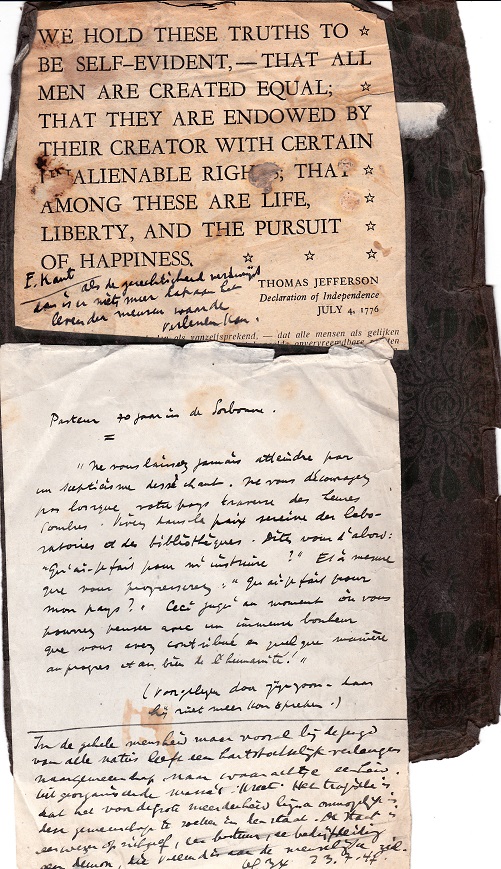 WE HOLD THESE TRUTHS TO ☆
BE SELF-EVIDENT,—THAT ALL
MEN ARE CREATED EQUAL; ☆
THAT THEY ARE ENDOWED BY
THEIR CREATOR WITH CERTAIN
UNALIENABLE RIGHTS; THAT ☆
AMONG THESE ARE LIFE, ☆
LIBERTY, AND THE PURSUIT ☆
OF HAPPINESS. ☆ ☆ ☆
E. Kant
als de gerechtigheid verdwijnt
dan is er niets meer dat aan het
leven der mensen waarde
verlenen kan.
THOMAS JEFFERSON
Declaration of Independence
JULY 4, 1776
als vanzelfsprekend, — dat alle mensen als gelijken
onvervreemdbare
Pasteur 70 jaar in de Sorbonne.
"Ne vous laissez jamais atteindre par
un scepticisme desséchant. Ne vous découragez
pas lorsque votre pays traverse des heures
sombres. Vivez dans la paix sereine des labo-
ratoires et des bibliothèques. Dites vous d'abord:
"Qu'ai-je fait pour m'instruire?" Et à mesure
que vous progresserez: "Qu'ai-je fait pour
mon pays?" Ceci jusqu'au moment où vous
pourrez penser avec un immense bonheur
que vous avez contribué en quelque manière
au progrès et au bien de l'humanité!"
(voorgelezen door zijn zoon - daar
hij niet meer kon spreken.)
In de gehele mensheid maar vooral bij de jeugd
van alle naties leeft een hartstochtelijk verlangen
naar gemeenschap, naar waarachtige eenheid.
georganiseerde massa's. Het tragische is
dat het voor de grote meerderheid bijna onmogelijk is
deze gemeenschap te zoeken in den staat. De staat is
een demon, die vreemd is aan de menselijke ziel.
23.7.47.